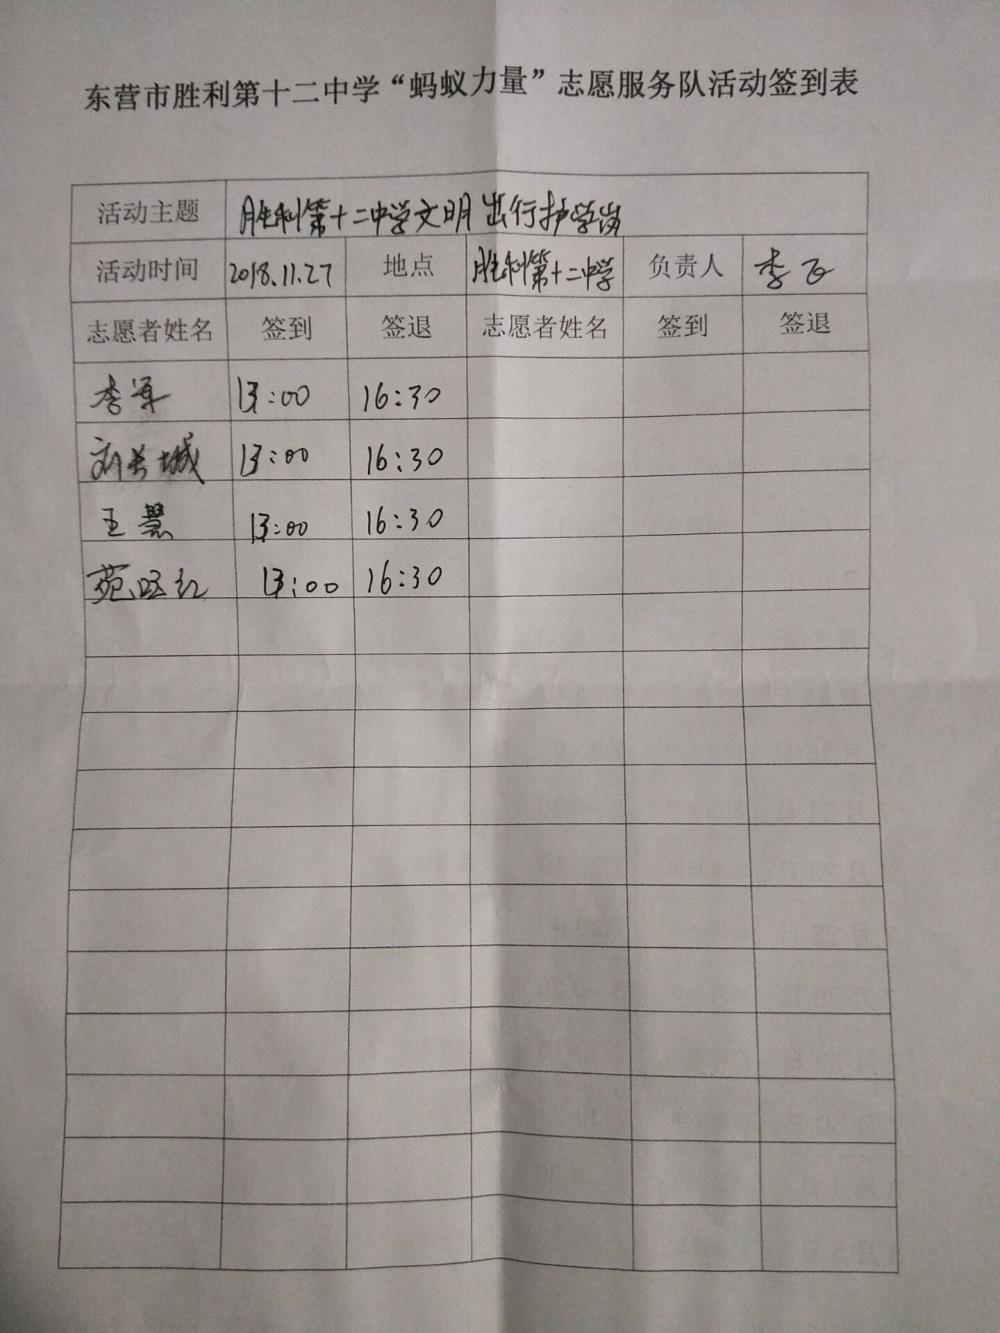 东营市胜利第十二中学“蚂蚁力量”志愿服务队活动签到表
活动主题 胜利第十二中学文明出行护学岗
活动时间 2018.11.27 地点 胜利第十二中学 负责人 李飞
志愿者姓名 签到 签退 志愿者姓名 签到 签退
李军 13:00 16:30
刘长城 13:00 16:30
王慧 13:00 16:30
苑 红 13:00 16:30